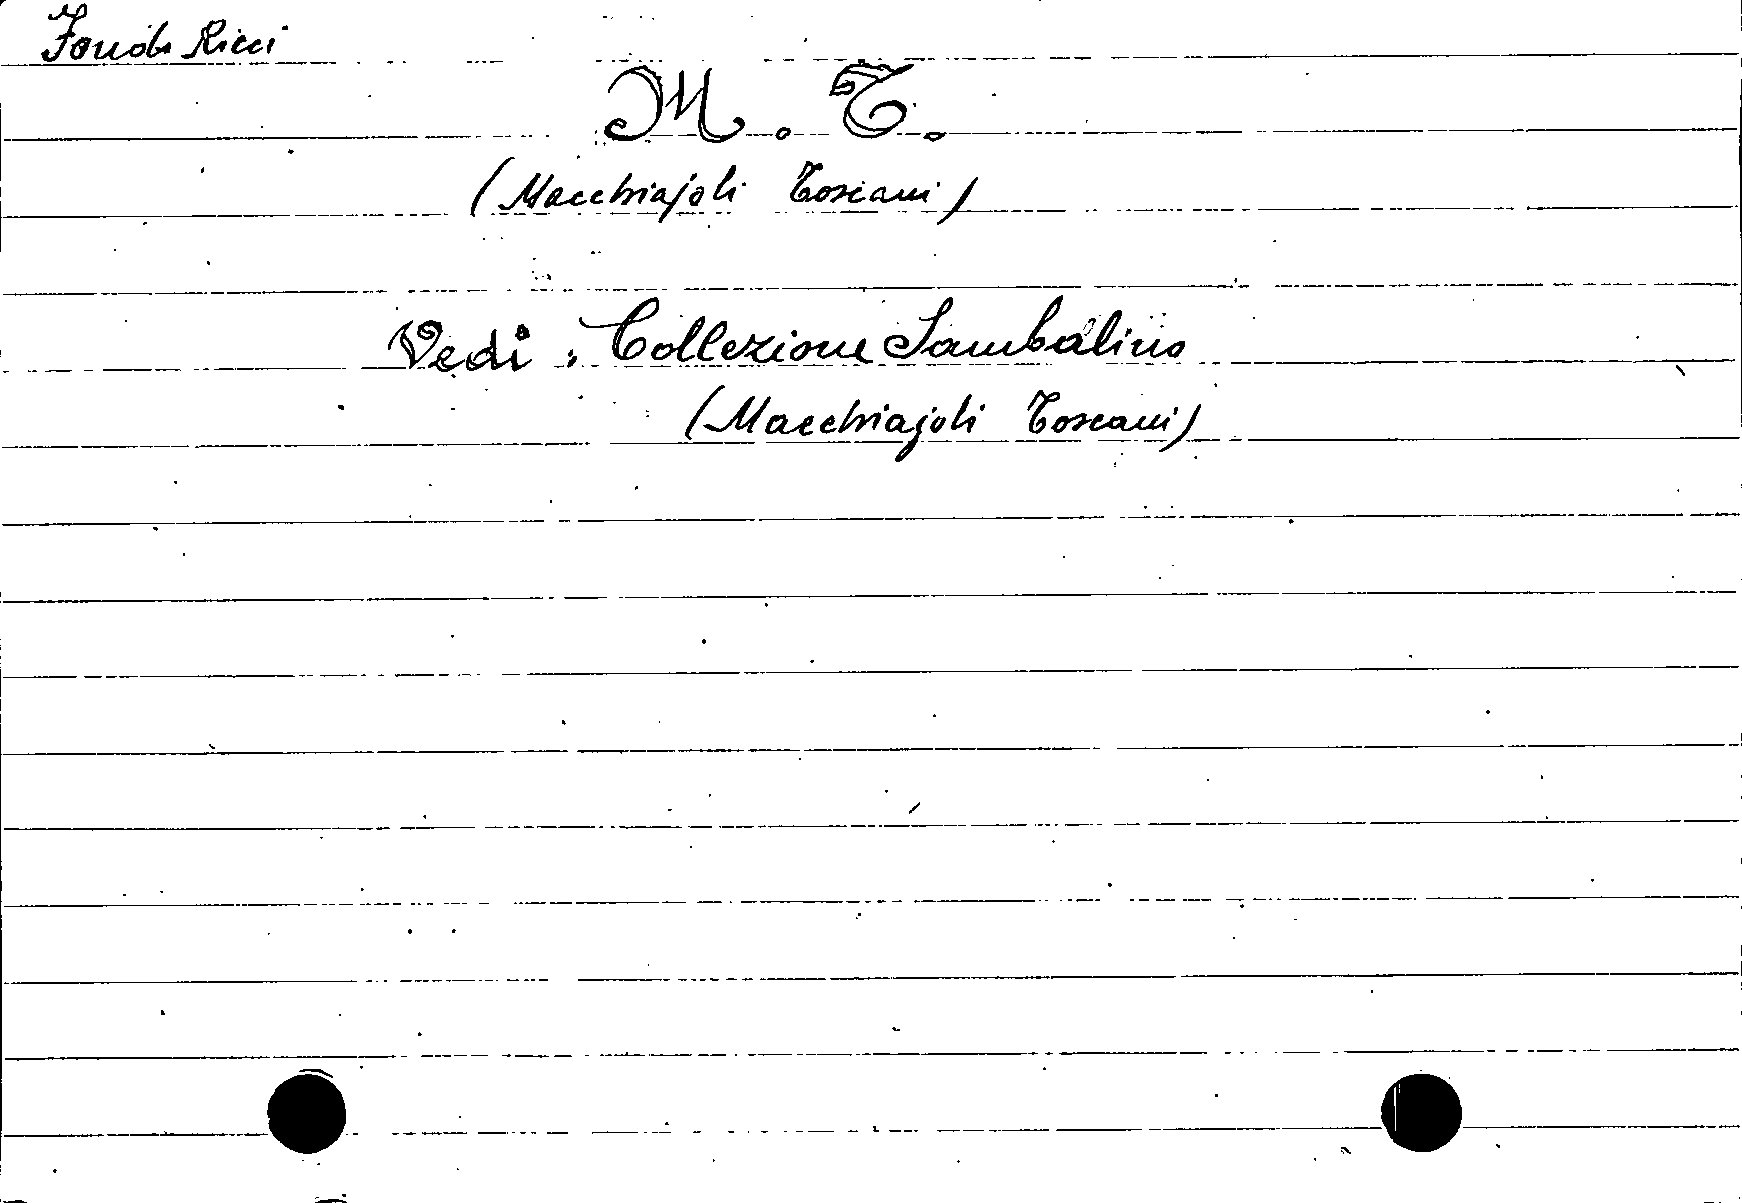 Fondo Ricci
M. T.
(Macchiajoli Toscani)
Vedi: Collezione Sambalino
(Macchiajoli Toscani)